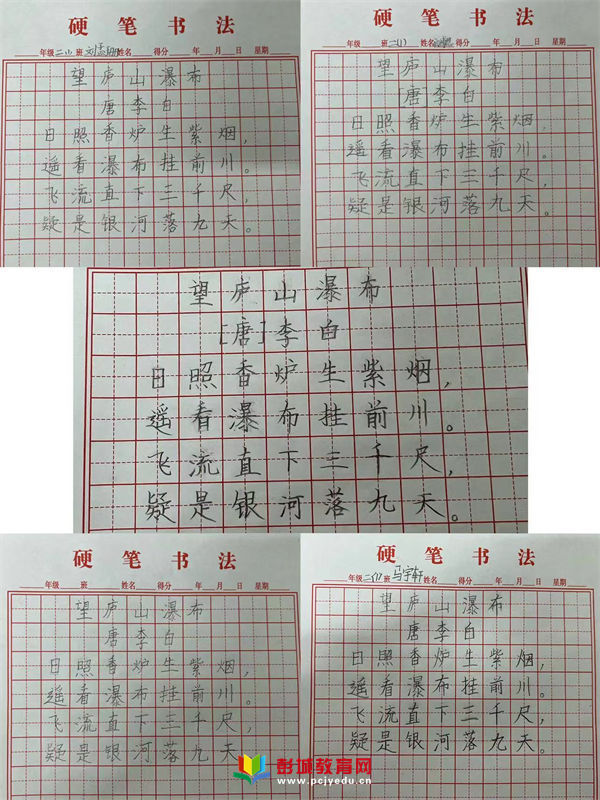 硬笔书法
年级 二(1) 班 刘 姓名 得分 年 月 日 星期
望庐山瀑布
唐 李白
日照香炉生紫烟，
遥看瀑布挂前川。
飞流直下三千尺，
疑是银河落九天。
硬笔书法
年级 二(1) 班 姓名 得分 年 月 日 星期
望庐山瀑布
[唐]李白
日照香炉生紫烟
遥看瀑布挂前川。
飞流直下三千尺，
疑是银河落九天。
望庐山瀑布
[唐]李白
日照香炉生紫烟，
遥看瀑布挂前川。
飞流直下三千尺，
疑是银河落九天。
硬笔书法
年级 班 姓名 得分 年 月 日 星期
望庐山瀑布
唐李白
日照香炉生紫烟，
遥看瀑布挂前川。
飞流直下三千尺，
疑是银河落九天。
硬笔书法
年级 二(1) 班 马宇轩 姓名 得分 年 月 日 星期
望庐山瀑布
唐李白
日照香炉生紫烟，
遥看瀑布挂前川。
飞流直下三千尺，
疑是银河落九天。
彭城教育网
www.pcjyedu.cn